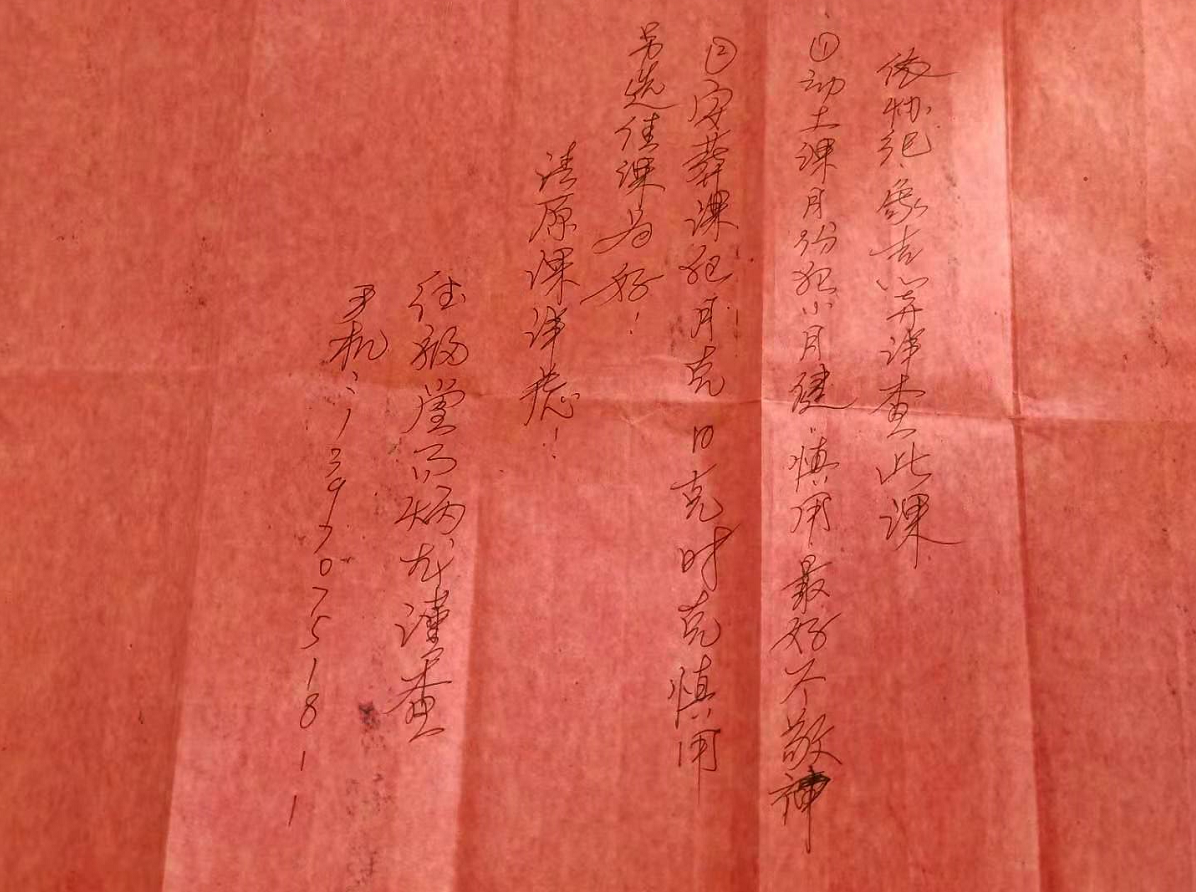 依协纪象吉心弃详查此课
①动土课月份犯小月健慎用最好不敬神
②安葬课犯月克日克时克慎用
另选佳课为好!
请原课详裁!
任福堂冯炳龙谨查
手机:13970751811